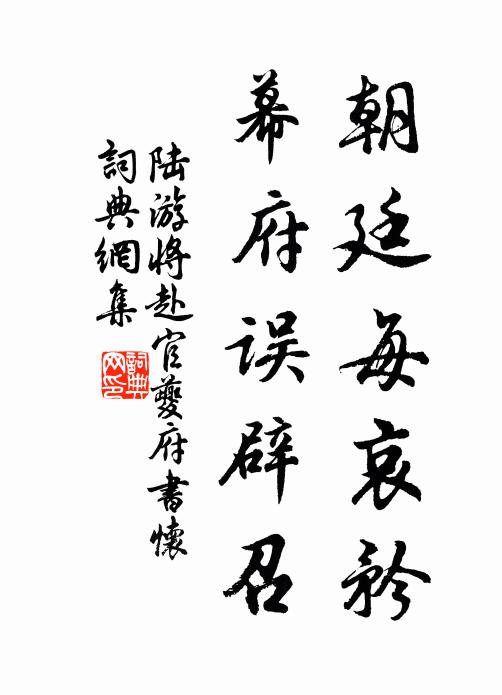 朝廷每哀矜
幕府误辟召
陆游将赴官夔府書懷
詞典網集
詞典网印